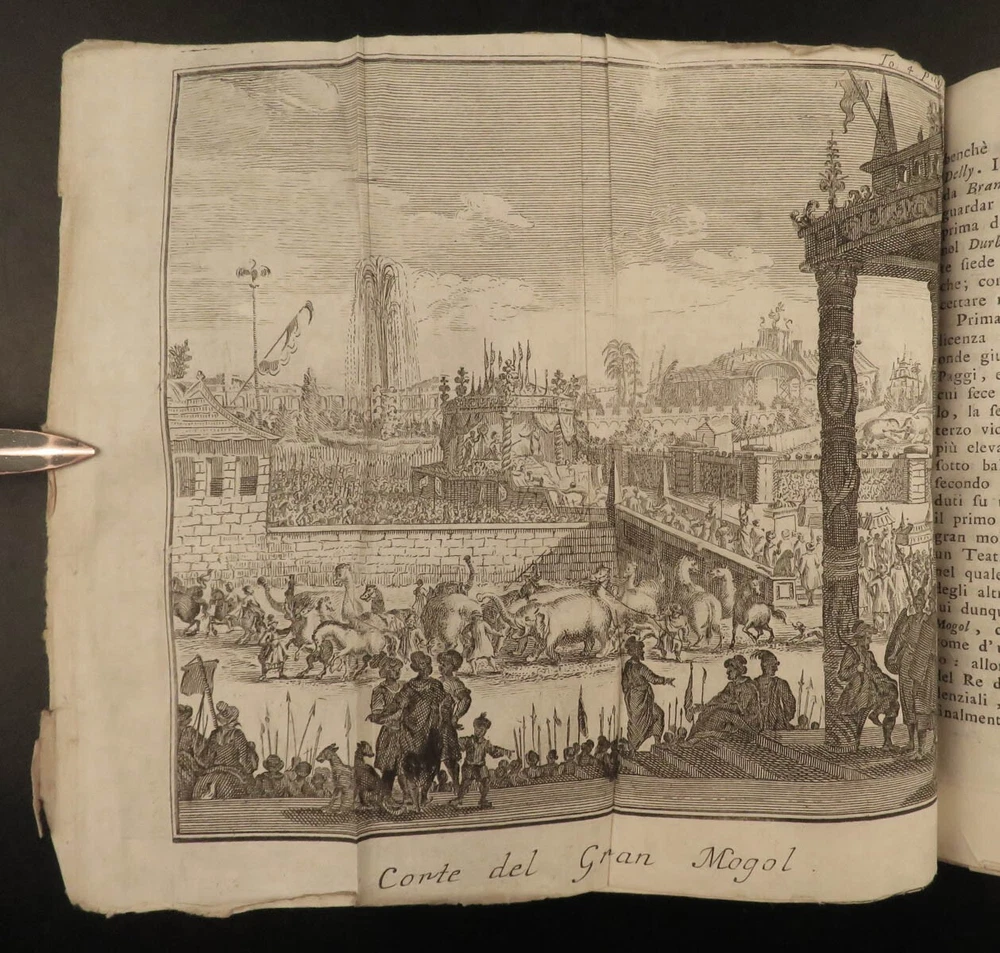 To. 4 pag
Corte del Gran Mogol.
benchè
Delly. I
da Bram
guardar
prima d
nol Durb
te siede
che; con
cettare
Prima
licenza
onde giu
Paggi, e
cui fece
lo, la se
terzo vic
più eleva
sotto ba
secondo
duti su
il primo
gran mo
un Teat
nel quale
degli alt
ui dunqu
Mogol, c
come d'u
o: allor
del Re d
denziali
inalment